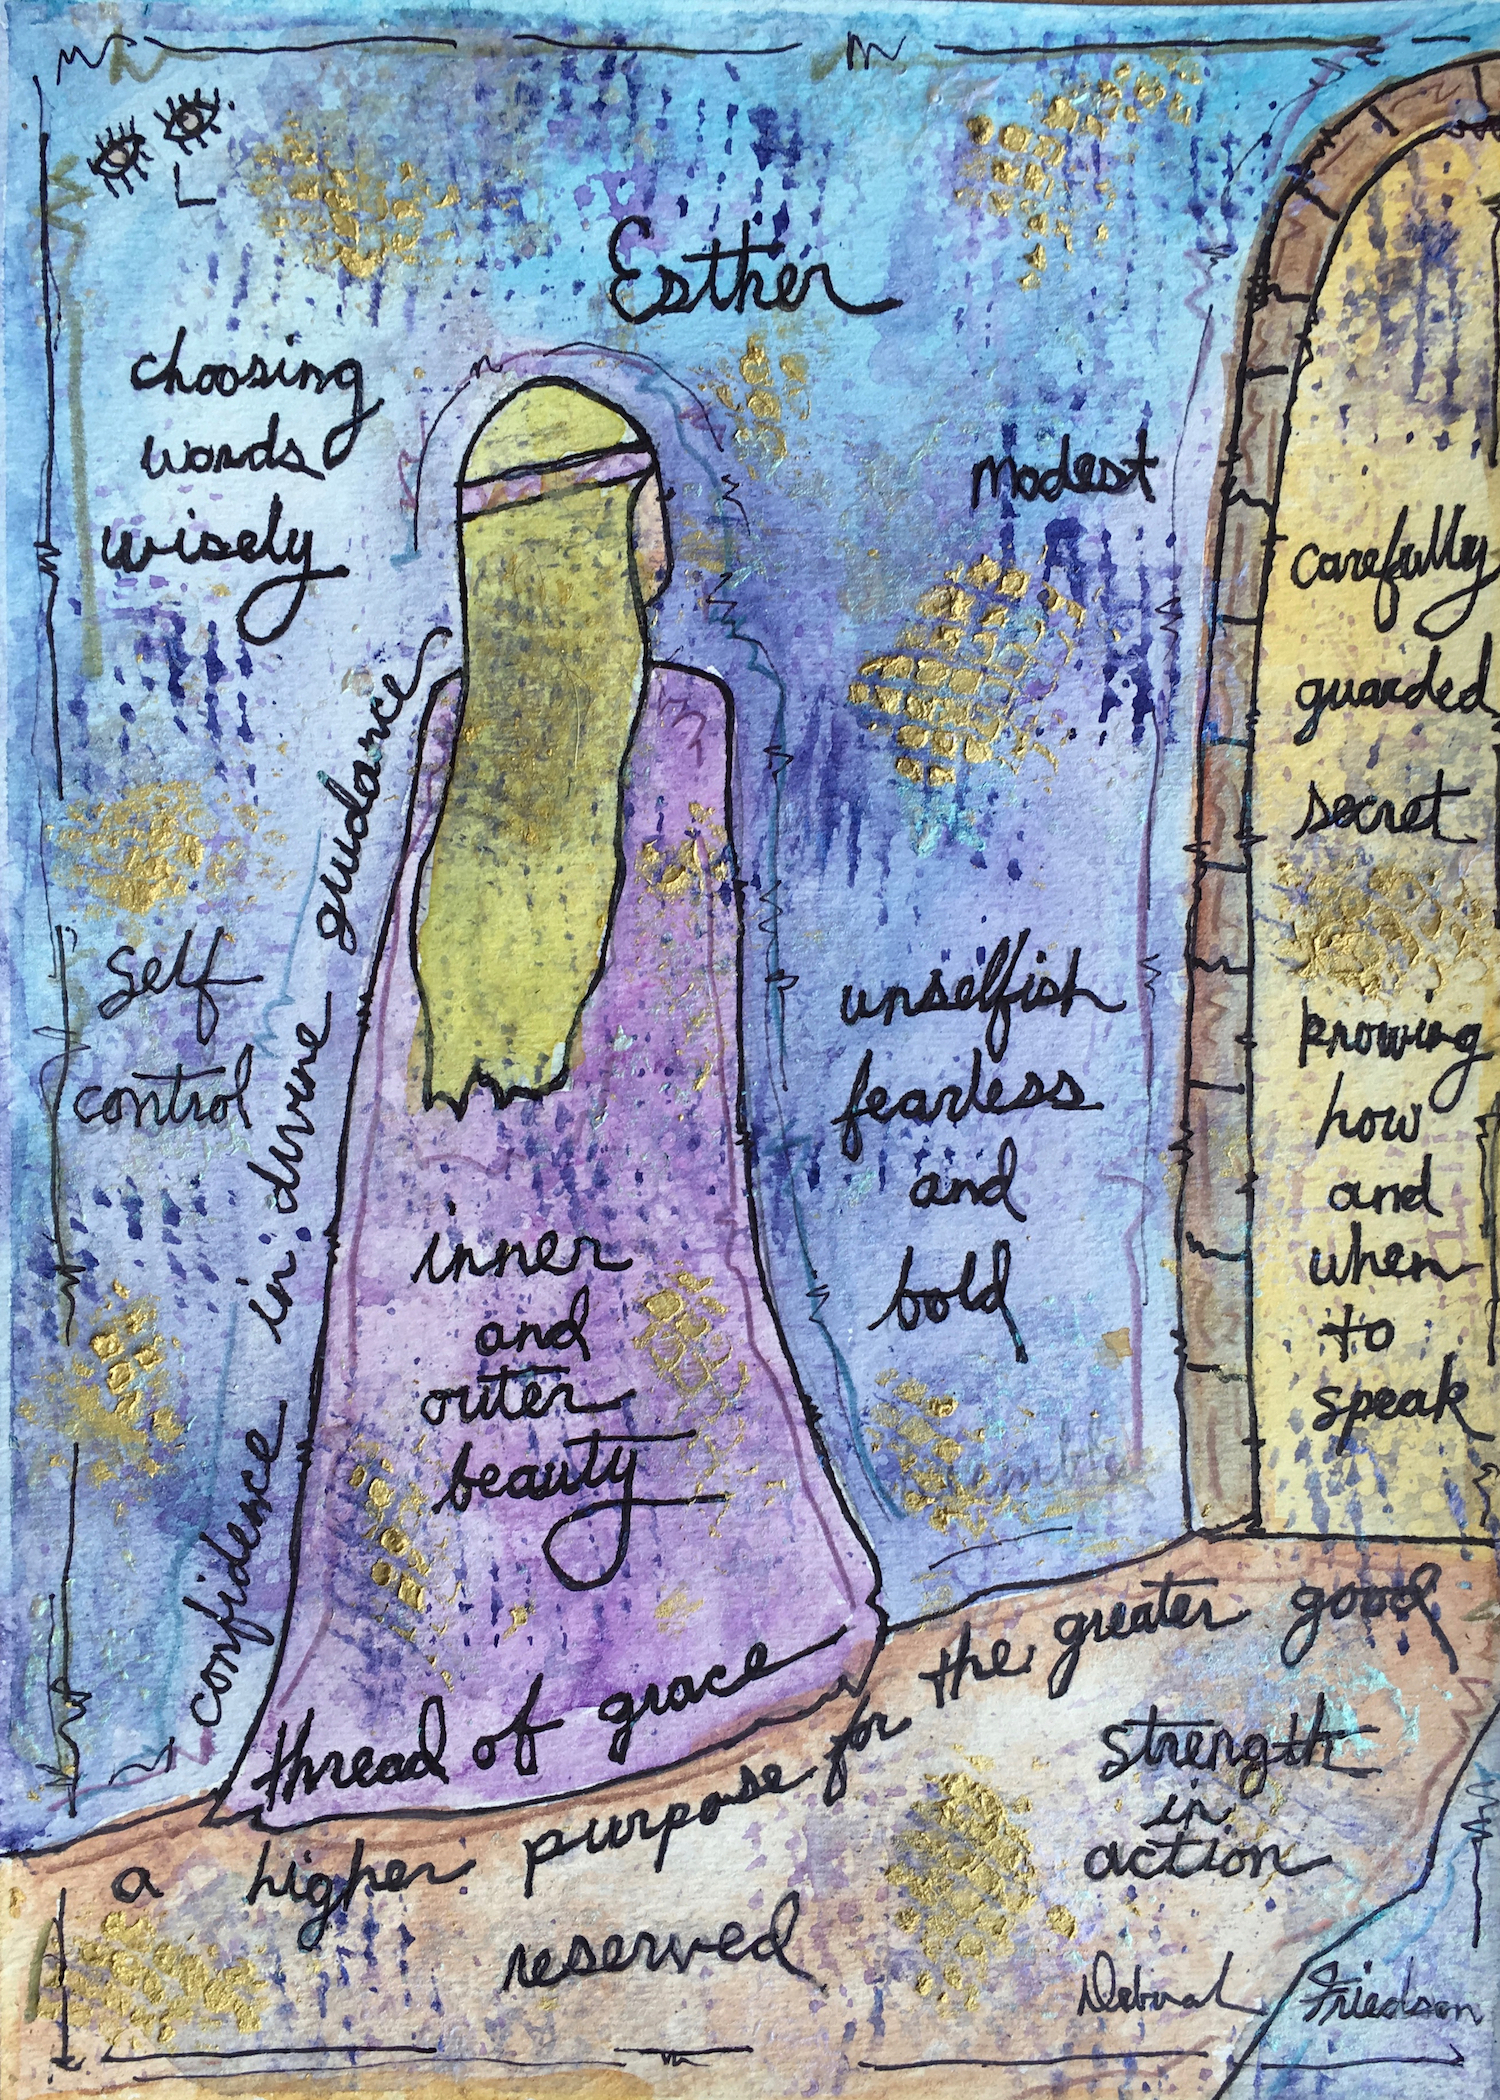 Esther
choosing
words
wisely
modest
carefully
guarded
secret
self
control
confidence in divine guidance
unselfish
fearless
and
bold
knowing
how
and
when
to
speak
inner
and
outer
beauty
thread of grace
a higher purpose for the greater good
strength
in
action
reserved
Deborah Friedson